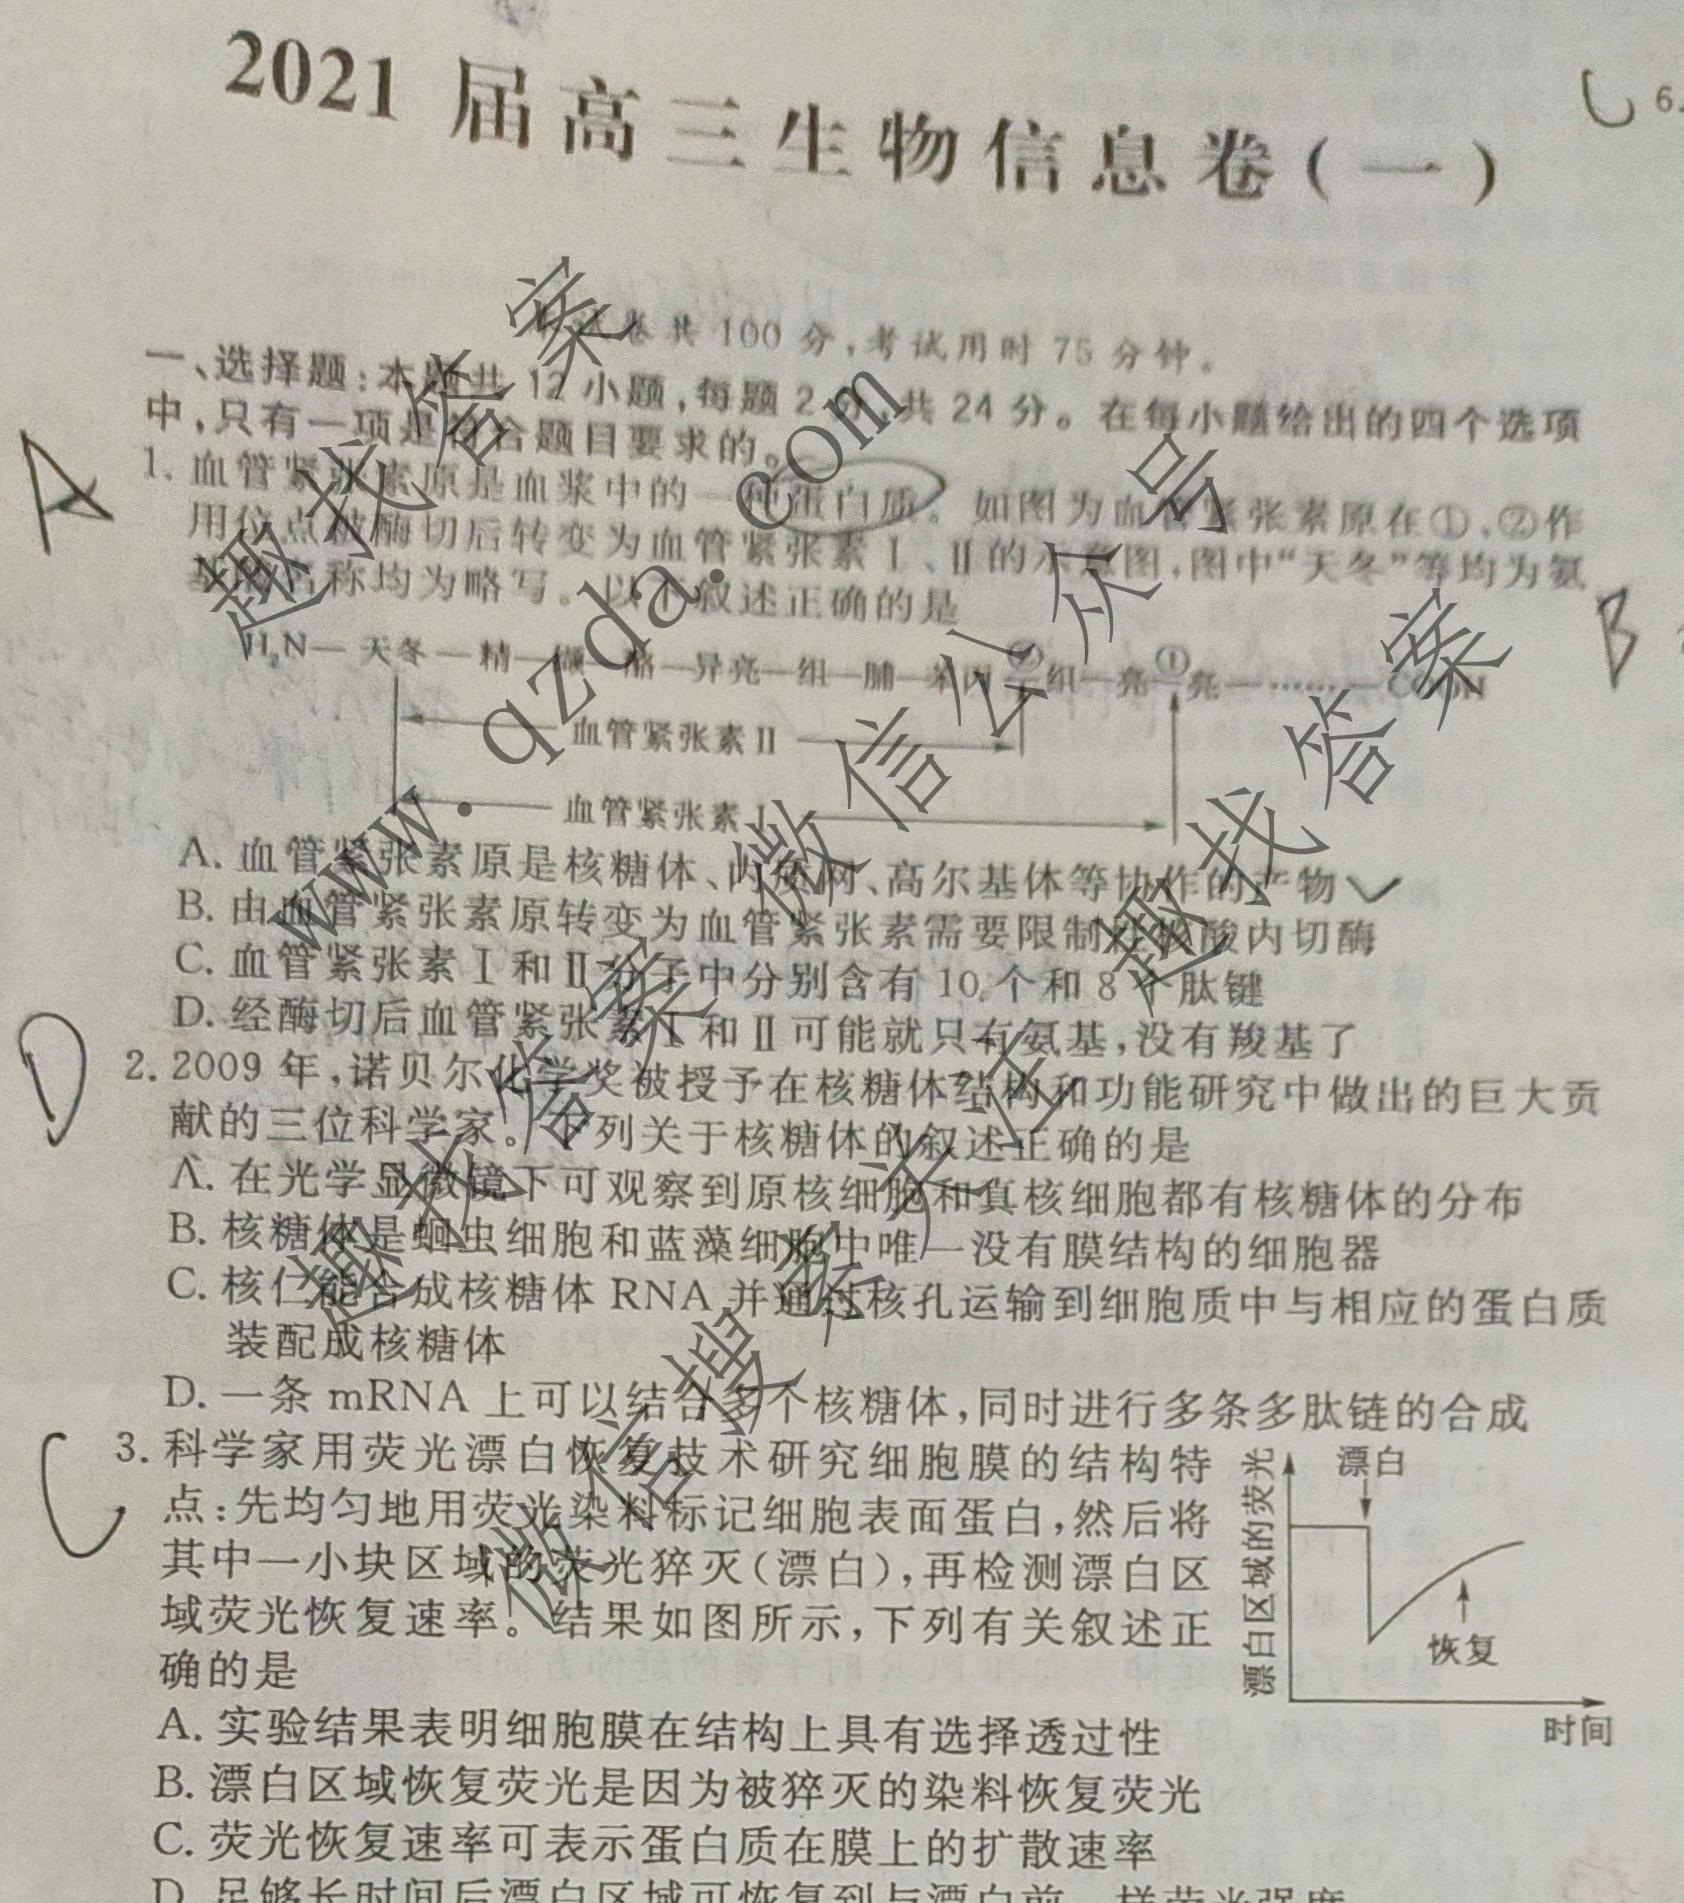 2021 届高三生物信息卷(一)
6.
卷共 100 分,考试用时 75 分钟。
一、选择题:本题共 12 小题,每题 2 分,共 24 分。在每小题给出的四个选项
中,只有一项是符合题目要求的。
A
1. 血管紧张素原是血浆中的一种蛋白质。如图为血管紧张素原在①、②作
用位点被酶切后转变为血管紧张素Ⅰ、Ⅱ的示意图,图中“天冬”等均为氨
基酸名称均为略写。以下叙述正确的是
B
H₂N—天冬—精—缬—酪—异亮—组—脯—苯丙②组—亮①亮—……—COOH
血管紧张素Ⅱ
血管紧张素Ⅰ
A. 血管紧张素原是核糖体、内质网、高尔基体等协作的产物
B. 由血管紧张素原转变为血管紧张素需要限制性核酸内切酶
C. 血管紧张素Ⅰ和Ⅱ分子中分别含有 10 个和 8 个肽键
D. 经酶切后血管紧张素Ⅰ和Ⅱ可能就只有氨基,没有羧基了
D
2. 2009 年,诺贝尔化学奖被授予在核糖体结构和功能研究中做出的巨大贡
献的三位科学家。下列关于核糖体的叙述正确的是
A. 在光学显微镜下可观察到原核细胞和真核细胞都有核糖体的分布
B. 核糖体是蛔虫细胞和蓝藻细胞中唯一没有膜结构的细胞器
C. 核仁能合成核糖体 RNA 并通过核孔运输到细胞质中与相应的蛋白质
装配成核糖体
D. 一条 mRNA 上可以结合多个核糖体,同时进行多条多肽链的合成
C
3. 科学家用荧光漂白恢复技术研究细胞膜的结构特
点:先均匀地用荧光染料标记细胞表面蛋白,然后将
其中一小块区域的荧光猝灭(漂白),再检测漂白区
域荧光恢复速率。结果如图所示,下列有关叙述正
确的是
漂白区域的荧光
漂白
恢复
时间
A. 实验结果表明细胞膜在结构上具有选择透过性
B. 漂白区域恢复荧光是因为被猝灭的染料恢复荧光
C. 荧光恢复速率可表示蛋白质在膜上的扩散速率
D. 足够长时间后漂白区域可恢复到与漂白前一样荧光强度
趣找答案
www.qzda.com
微信公众号
趣找答案
趣找答案
微信搜索关注